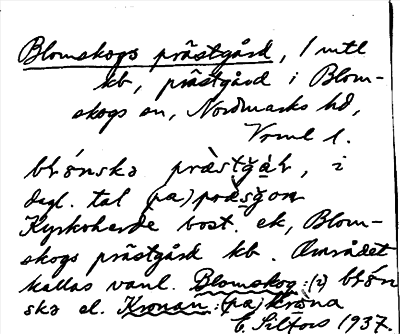 Blomskogs prästgård, 1 mtl
kb, prästgård i Blom-
skogs sn, Nordmarks hd,
Vrml l.
i
dagl. tal (pa)
Kyrkoherde bost. ek, Blom-
skogs prästgård kb. Området
kallas vanl. Blomskog: (i)
ska el. Kronan: (pa) kròna
1937.